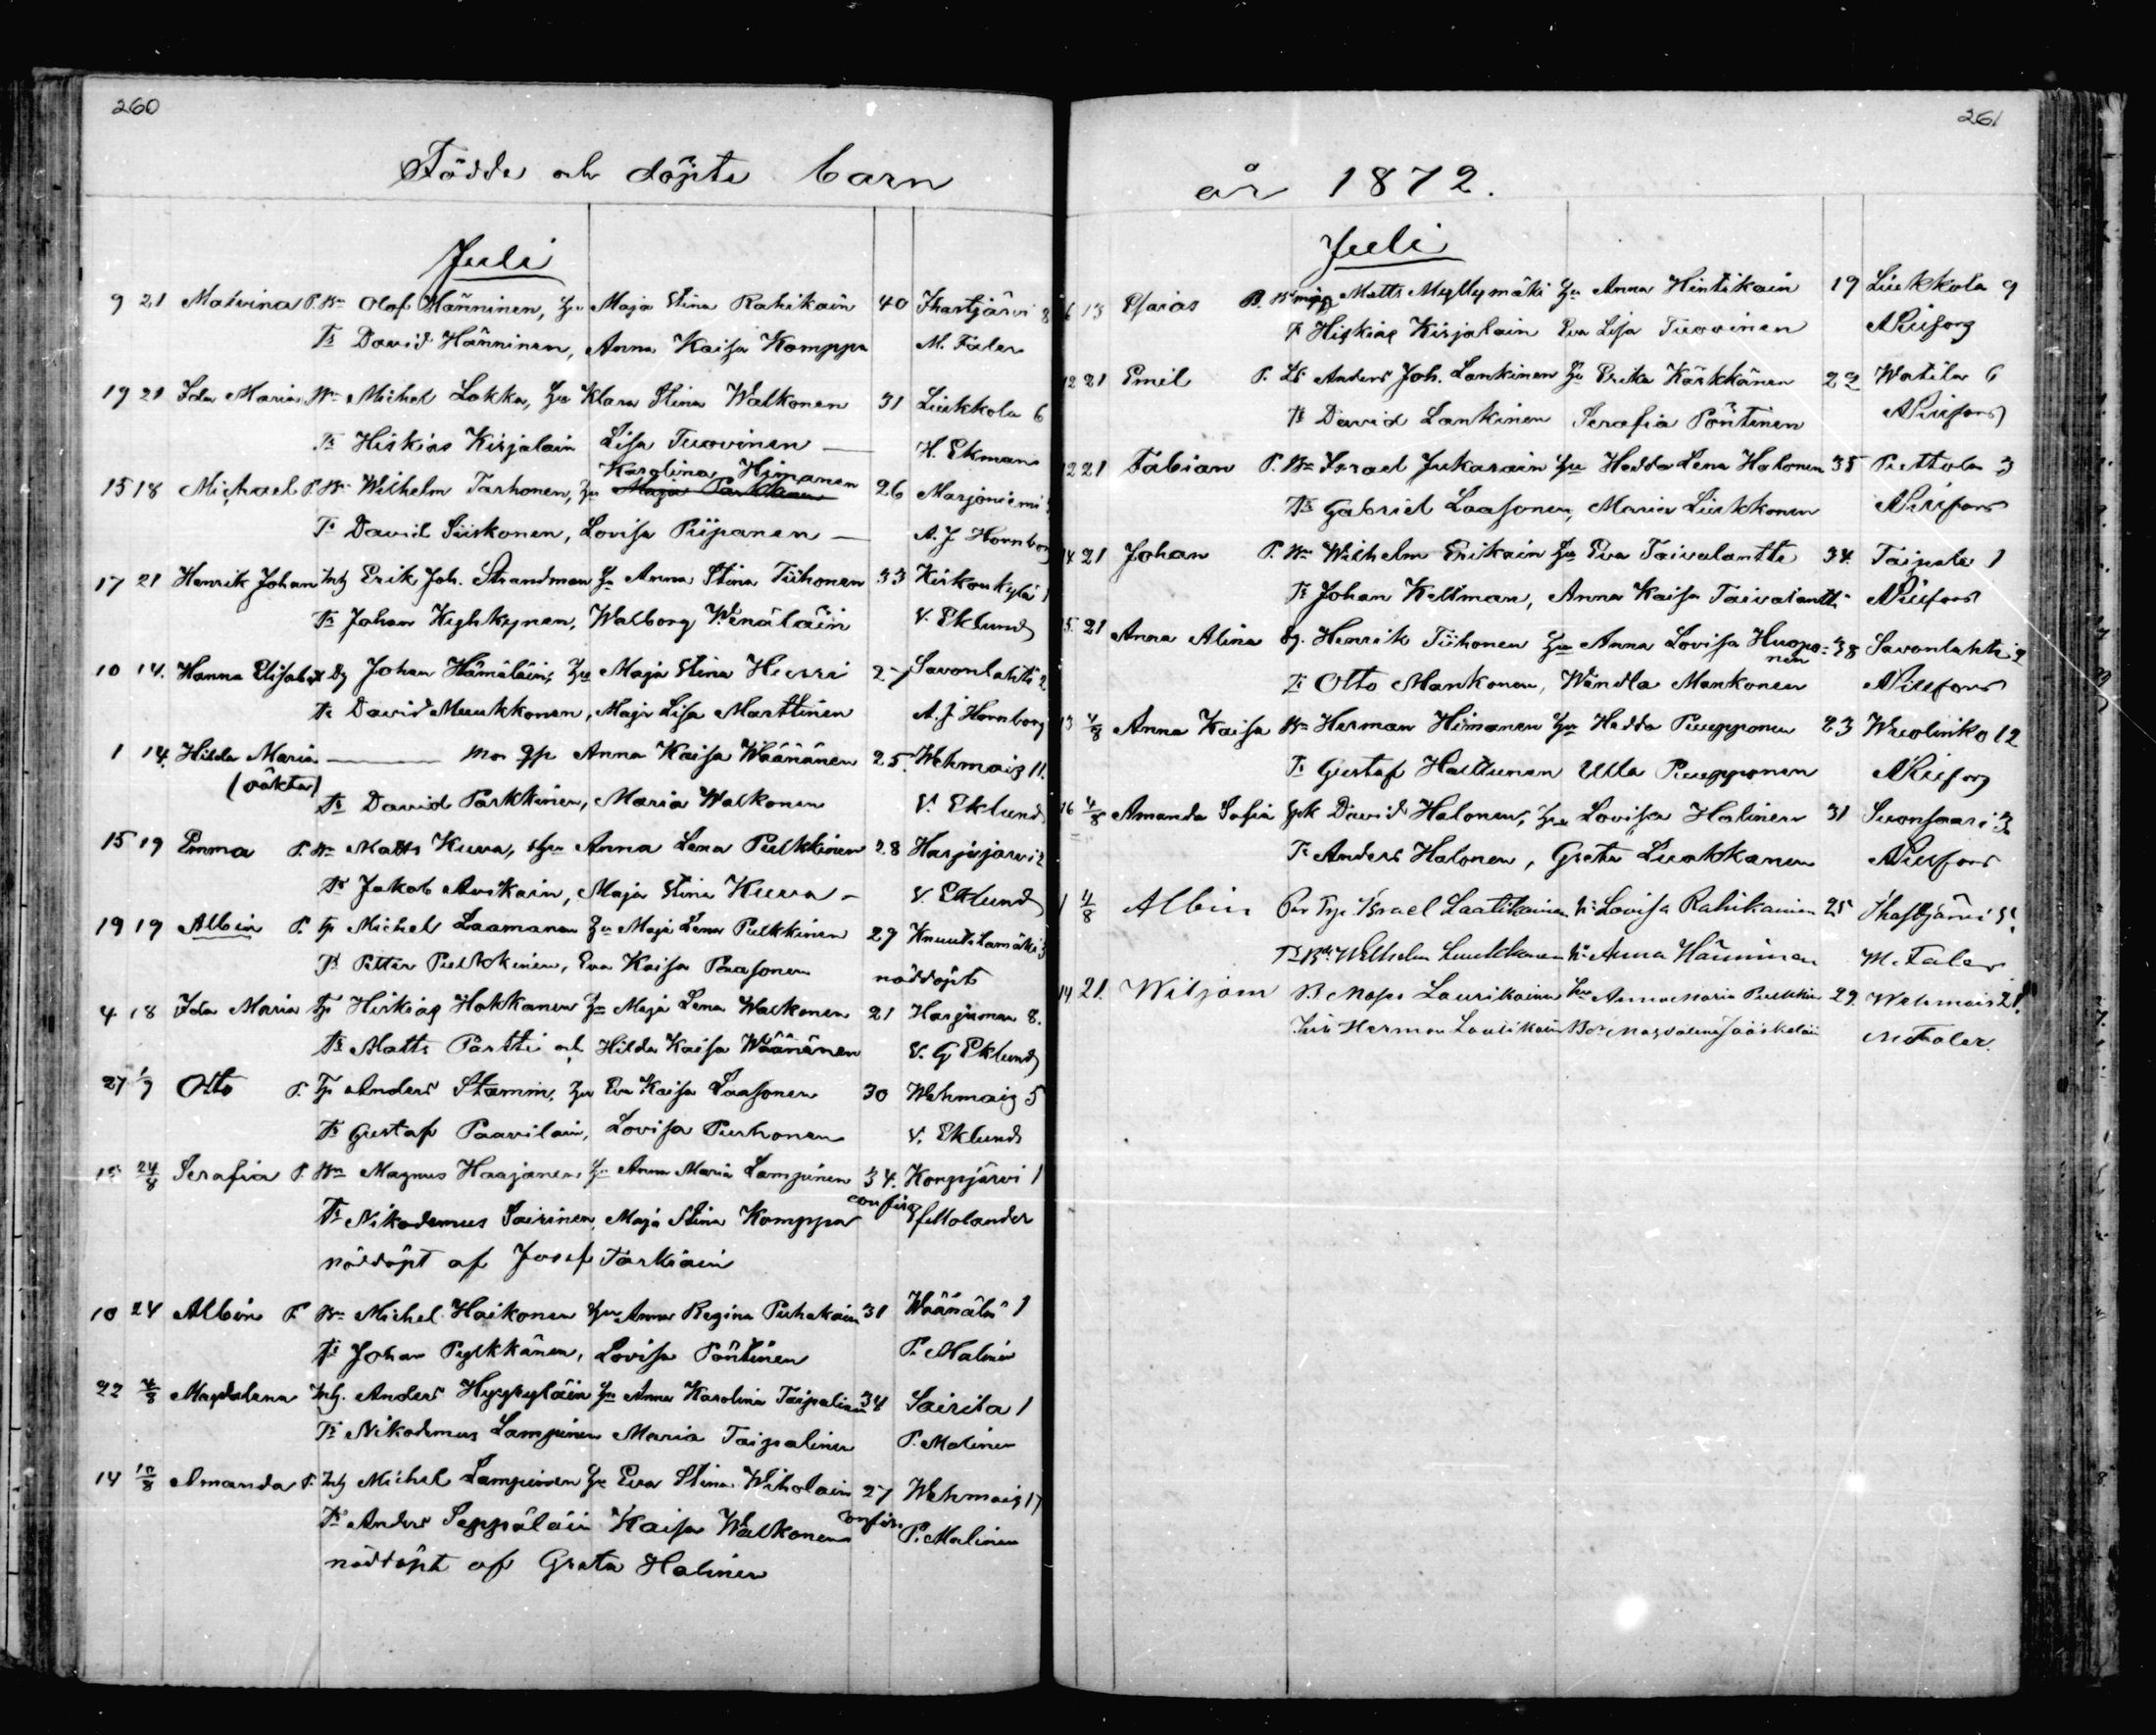 260
Födde och döpte barn
Juli
9 21 Malvina P. Bn Olof Hänninen, Hu Maja Stina Rahikain 40 Ihastjärvi 8
Ts David Hänninen, Anna Kaisa Komppa M. Faler
19 21 Ida Maria Bn Michel Lokka, Hu Klara Stina Walkonen 31 Liukkola 6
Ts Hiskias Kirjalain Lisa Tuovinen — H. Ekman
Karolina Himanen
15 18 Michael P Bn Wilhelm Tarhonen, Hu Maja Parkkinen 26 Marjoniemi
Ts David Siiskonen, Lovisa Piipanen — A. J Hornborg
17 21 Henrik Johan Inh Erik Joh. Strandman Hu Anna Stina Tiihonen 33 Kirkonkylä 1
Ts Johan Kyhkynen, Walborg Wenäläin V. Eklund
10 14. Hanna Elisabet Dg Johan Hämäläin, Hu Maja Stina Hierri 27 Savonlahti 2
Ts David Muukkonen, Maja Lisa Marttinen A. J Hornborg
1 14. Hilda Maria — mor qp Anna Kaisa Wäänänen 25. Wehmais 11.
(oäkta) Ts David Parkkinen, Maria Walkonen V. Eklund
15 19 Emma P. Bn Matts Kuva, Hu Anna Lena Pulkkinen 28 Harjujärvi 2
Ts Jakob Auvikain, Maja Stina Kuva — V. Eklund
19 19 Albin P. Tp Michel Laamanen Hu Maja Lena Pulkkinen 29 Knuutilamäki 3
Ts Petter Pulkkinen, Eva Kaisa Paasonen nöddöpt
4 18 Ida Maria Tp Hiskias Hokkanen Hu Maja Lena Walkonen 21 Harjumaa 8.
Ts Matts Partti och Hilda Kaisa Wäänänen V. G Eklund
27 1/9 Otto P. Tp Anders Stamm, Hu Eva Kaisa Laasonen 30 Wehmais 5
Ts Gustaf Paavilain, Lovisa Purhonen V. Eklund
24/8 Serafia P. Bn Magnus Haajanen, Hu Anna Maria Lampinen 34. Korpijärvi 1
Ts Nikodemus Sairinen Maja Stina Komppa confirm Molander
nöddöpt af Josef Tarkiain
10 24 Albin P. Bn Michel Haikonen Hu Anna Regina Puhakain 31 Wäänälä 1
Ts Johan Pylkkänen, Lovisa Pöntinen P. Malinen
22 4/8 Magdalena Inh. Anders Hyyryläin Hu Anna Karolina Taipalinen 34 Sairila 1
Ts Nikodemus Lampinen Maria Taipalinen P. Malinen
14 18/8 Amanda P. Inh Michel Lampinen Hu Eva Stina Wiholain 27 Wehmais 17
Ts Anders Seppäläin Kaisa Walkonen confirm P. Malinen
nöddöpt af Greta Halinen
261
år 1872.
Juli
6 13 Esaias P. Bn Matts Myllymäki Hu Anna Hintikain 19 Liukkola 9
Ts Hiskias Kirjalain Eva Lisa Tuovinen A Riufors
12 21 Emil P. Ls Anders Joh. Lankinen Hu Erika Kärkkänen 22 Watila 6
Ts David Lankinen Serafia Pöntinen A Riufors
12 21 Fabian P. Bn Israel Jukarain Hu Hedda Lena Halonen 35 Pettola 3
Ts Gabriel Laasonen, Maria Liukkonen A Riufors
14 21 Johan P. Bn Wilhelm Erikain Hu Eva Taivalantti 34. Taipale 1
Ts Johan Kellman, Anna Kaisa Taivalantti A Riufors
15. 21 Anna Alina Dg. Henrik Tiihonen Hu Anna Lovisa Huoponen 38 Savonlahti 2
Ts Otto Mankonen, Wendla Mankonen A Riufors
13 4/8 Anna Kaisa Bn Herman Himanen Hu Hedda Piupponen 23 Wuolinko 12
Ts Gustaf Hallunen Ulla Piupponen A Riufors
16 4/8 Amanda Sofia David Halonen, Hu Lovisa Halinen 31 Suonsaari 3
Ts Anders Halonen, Greta Luokkanen A Riufors
1 4/8 Albin Par Tp. Israel Laatikainen h. Lovisa Rahikainen 25 Ihastjärvi 5.
Ts Bn Wilhelm Luukkonen h. Anna Hänninen M. Faler
14 21. Wiljam B. Maps Laurikainen Hu Anna Maria Pulkkin 29. Wehmais 21.
Herman Laurikain Magdalena Jääskeläi M Faler.